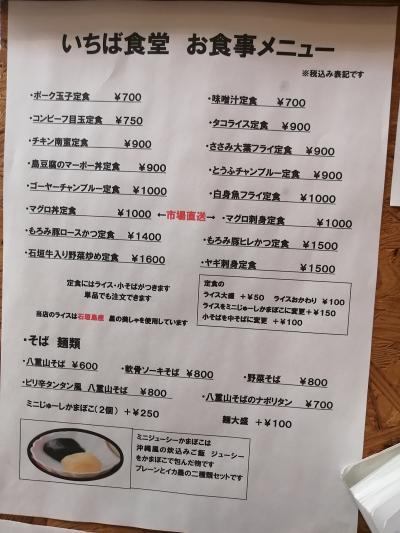 いちば食堂　お食事メニュー
※税込み表記です
・ポーク玉子定食　￥700
・味噌汁定食　￥700
・コンビーフ目玉定食　￥750
・タコライス定食　￥900
・チキン南蛮定食　￥900
・ささみ大葉フライ定食　￥900
・島豆腐のマーボー丼定食　￥900
・とうふチャンプルー定食　￥900
・ゴーヤーチャンプルー定食　￥1000
・白身魚フライ定食　￥1000
・マグロ丼定食　￥1000　←市場直送→　・マグロ刺身定食　￥1000
・もろみ豚ロースかつ定食　￥1400
・もろみ豚ヒレかつ定食　￥1500
・石垣牛入り野菜炒め定食　￥1600
・ヤギ刺身定食　￥1500
定食にはライス・小そばがつきます
単品でも注文できます
当店のライスは石垣島産　星の美しゃを使用しています
定食の
ライス大盛　＋￥50　ライスおかわり　￥100
ライスをミニじゅーしかまぼこに変更＋￥150
小そばを中そばに変更　＋￥100
・そば　麺類
・八重山そば　￥600　・軟骨ソーキそば　￥800　・野菜そば　￥800
・ピリ辛タンタン風　八重山そば　￥800　・八重山そばのナポリタン　￥700
ミニじゅーしかまぼこ（２個）　＋￥250　麺大盛　＋￥100
ミニジューシーかまぼこは
沖縄風の炊込みご飯　ジューシー
をかまぼこで包んだ物です
プレーンとイカ墨の二種類セットです